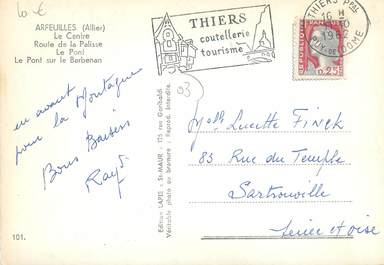 10 €
ARFEUILLES (Allier)
Le Centre
Route de la Palisse
Le Pont
Le Pont sur le Barbenan
THIERS
coutellerie
tourisme
THIERS Ppal
16 H
1962
PUY-DE-DOME
REPUBLIQUE FRANÇAISE
0,25
03
en avant
pour la Montagne
Bons Baisers
Ray
Edition LAPIE - St-MAUR - 175 rue Garibaldi
Véritable photo au bromure - Reprod. interdite.
Melle Lucette Finck
83 Rue du Temple
Sartrouville
Seine et Oise
101.